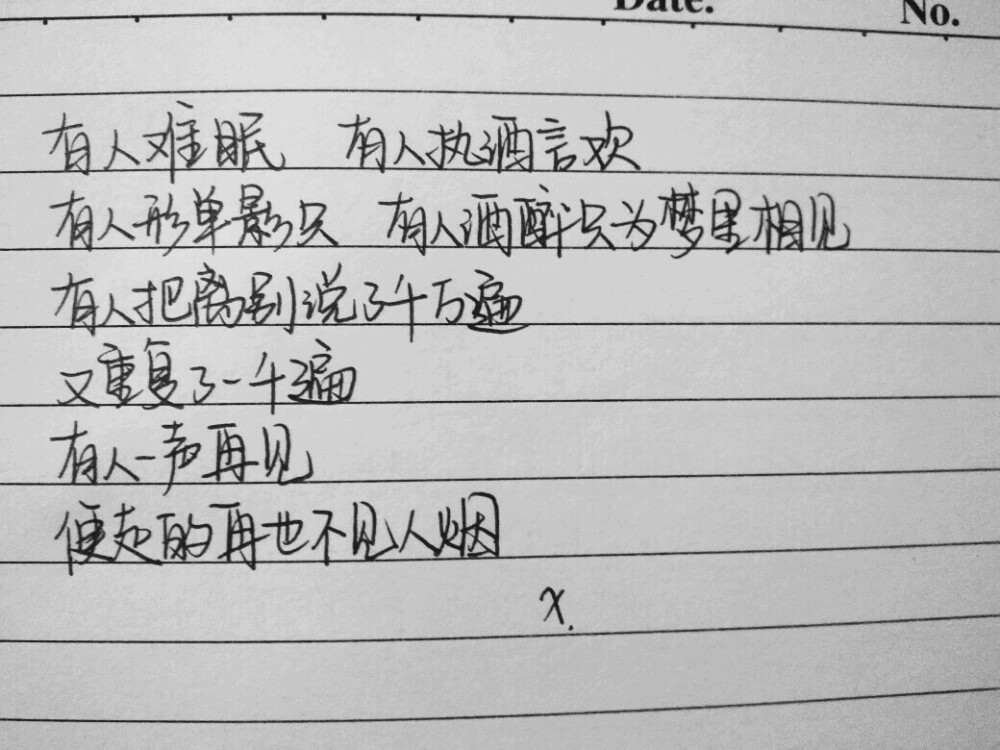 Date. No.
有人难眠 有人执酒言欢
有人形单影只 有人酒醉只为梦里相见
有人把离别说了千万遍
又重复了一千遍
有人一声再见
便走的再也不见人烟
X.